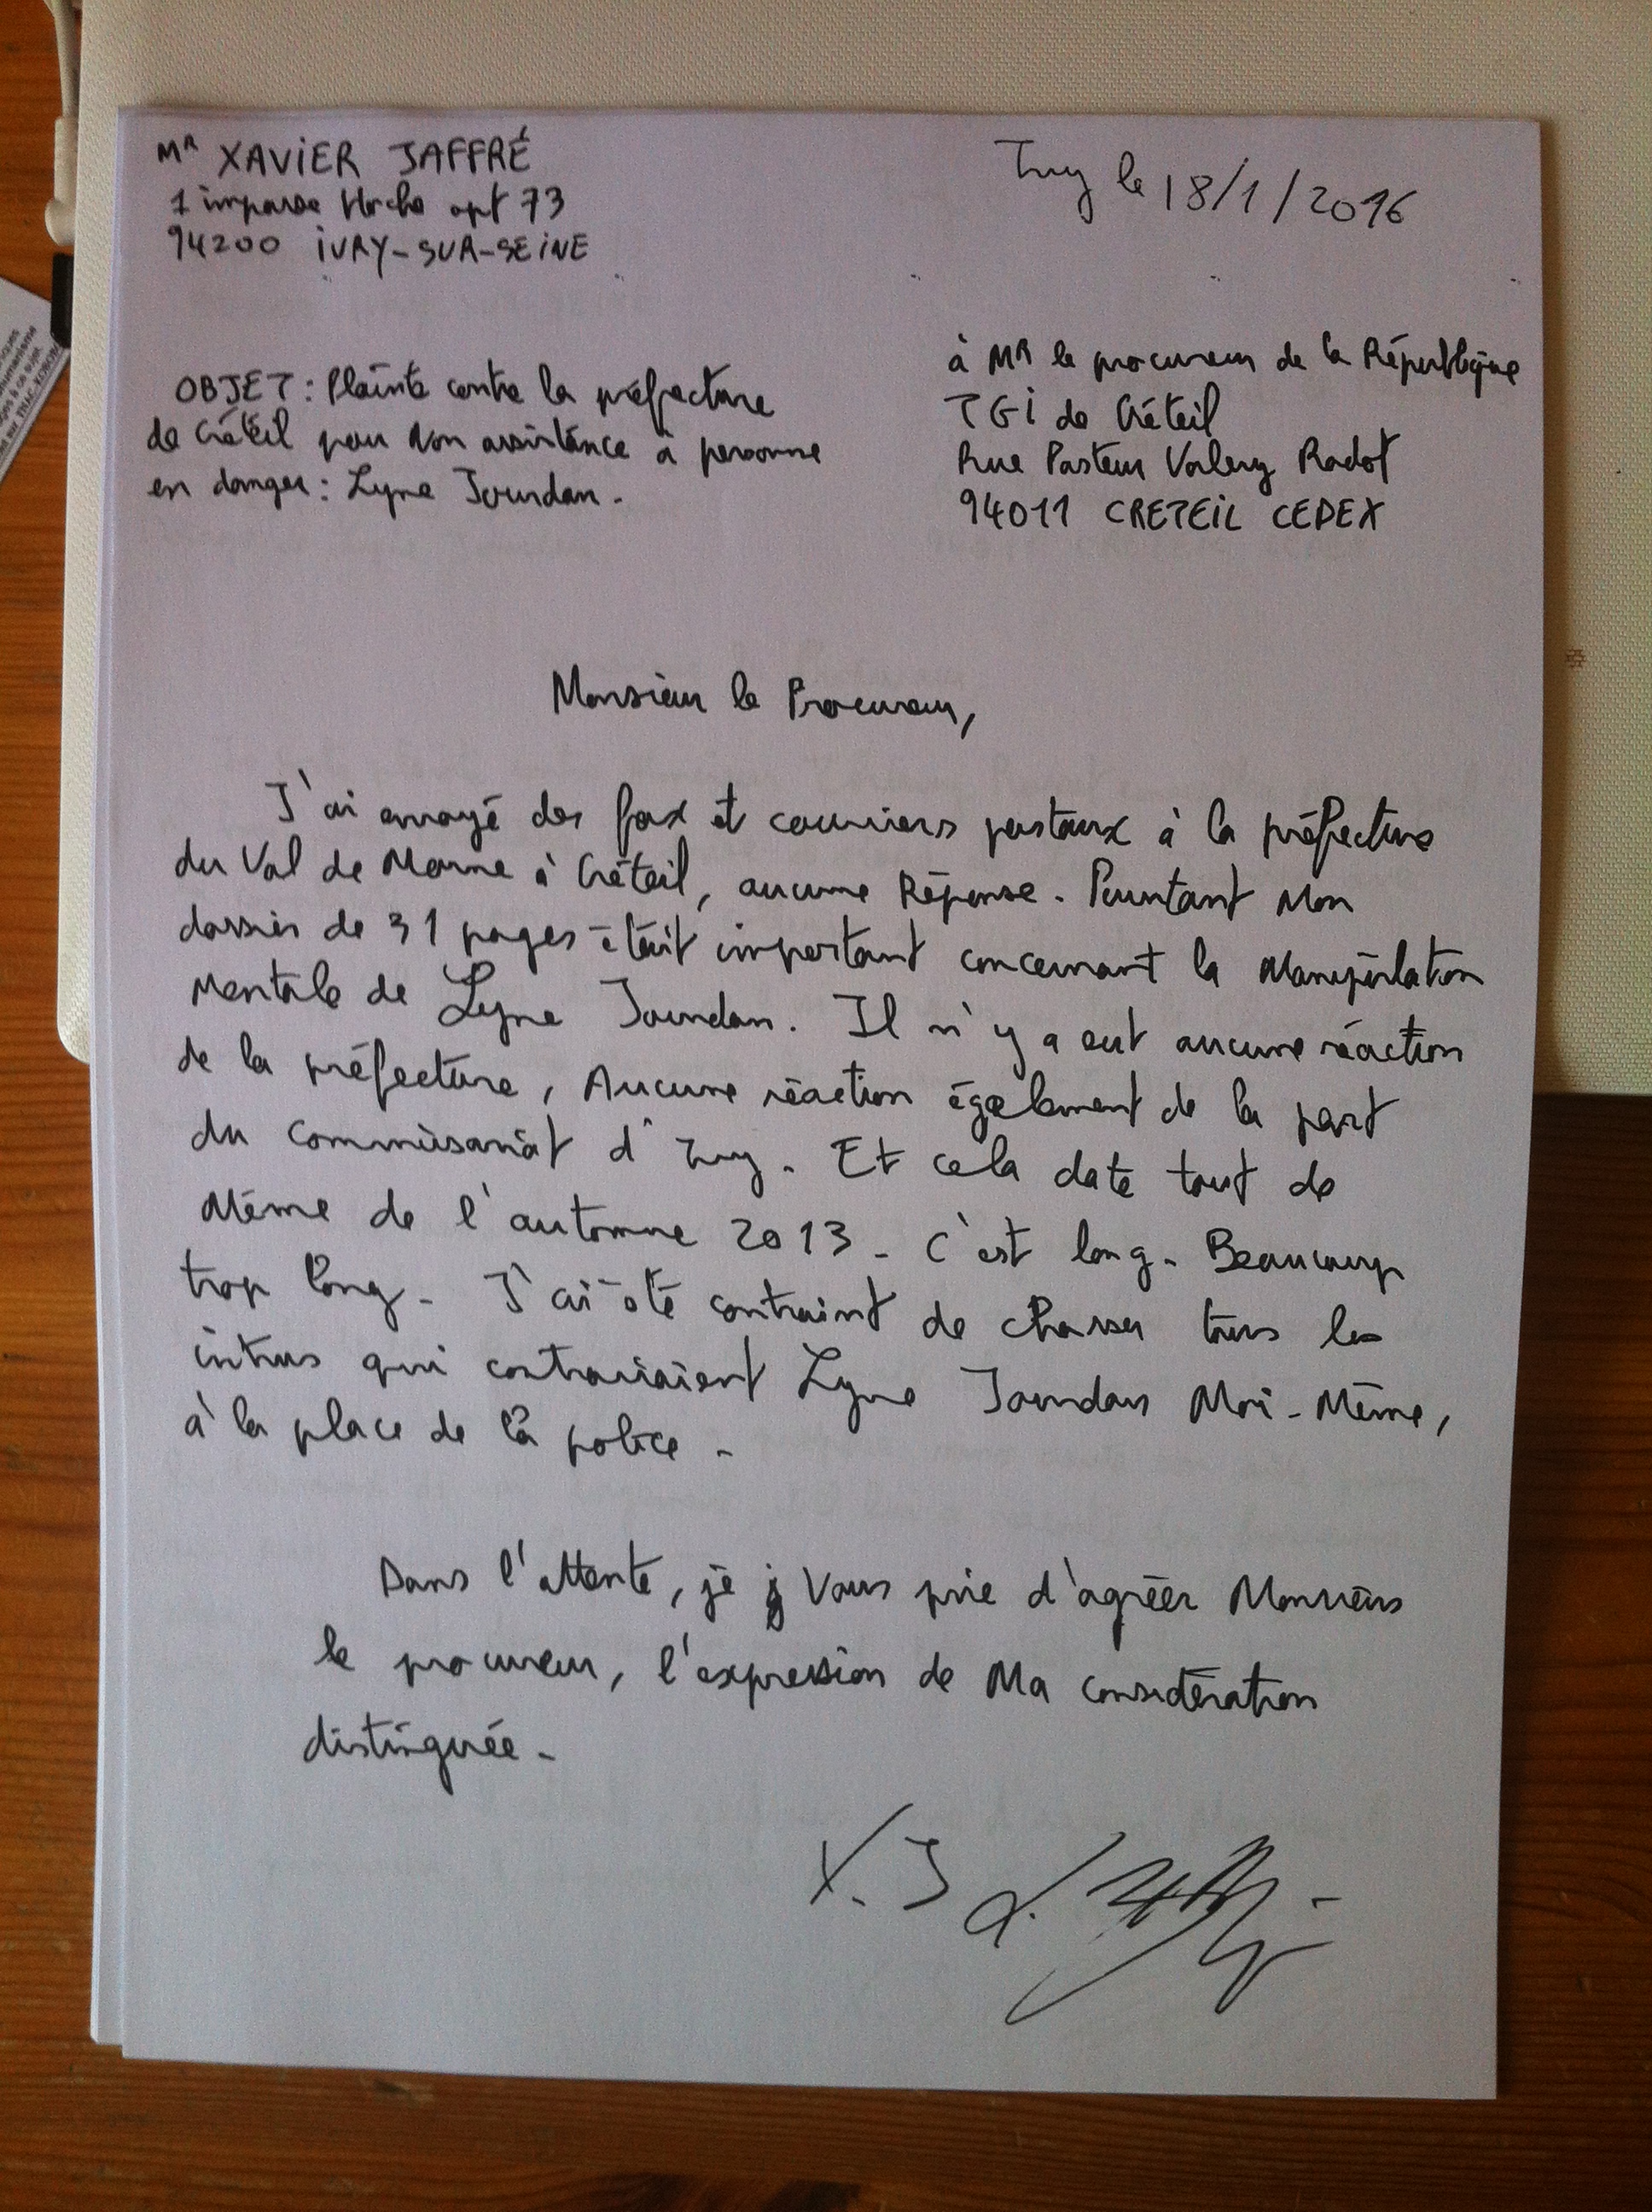 MR XAVIER JAFFRÉ
1 impasse Hoche apt 73
94200 IVRY-SUR-SEINE
Ivry le 18/1/2016
OBJET : Plainte contre la préfecture
de Créteil pour Non assistance à personne
en danger : Lyne Jourdan.
à MR le procureur de la République
TGI de Créteil
Rue Pasteur Valery Radot
94011 CRETEIL CEDEX
Monsieur le Procureur,
J'ai envoyé des fax et courriers postaux à la préfecture
du Val de Marne à Créteil, aucune Réponse. Pourtant Mon
dossier de 31 pages était important concernant la Manipulation
Mentale de Lyne Jourdan. Il n'y a eut aucune réaction
de la préfecture, Aucune réaction également de la part
du commissariat d'Ivry. Et cela date tout de
Même de l'automne 2013. C'est long. Beaucoup
trop long. J'ai été contraint de chasser tous les
intrus qui contrariaient Lyne Jourdan Moi-Même,
à la place de la police.
Dans l'attente, je vous prie d'agréer Monsieur
le procureur, l'expression de Ma considération
distinguée.
X. J